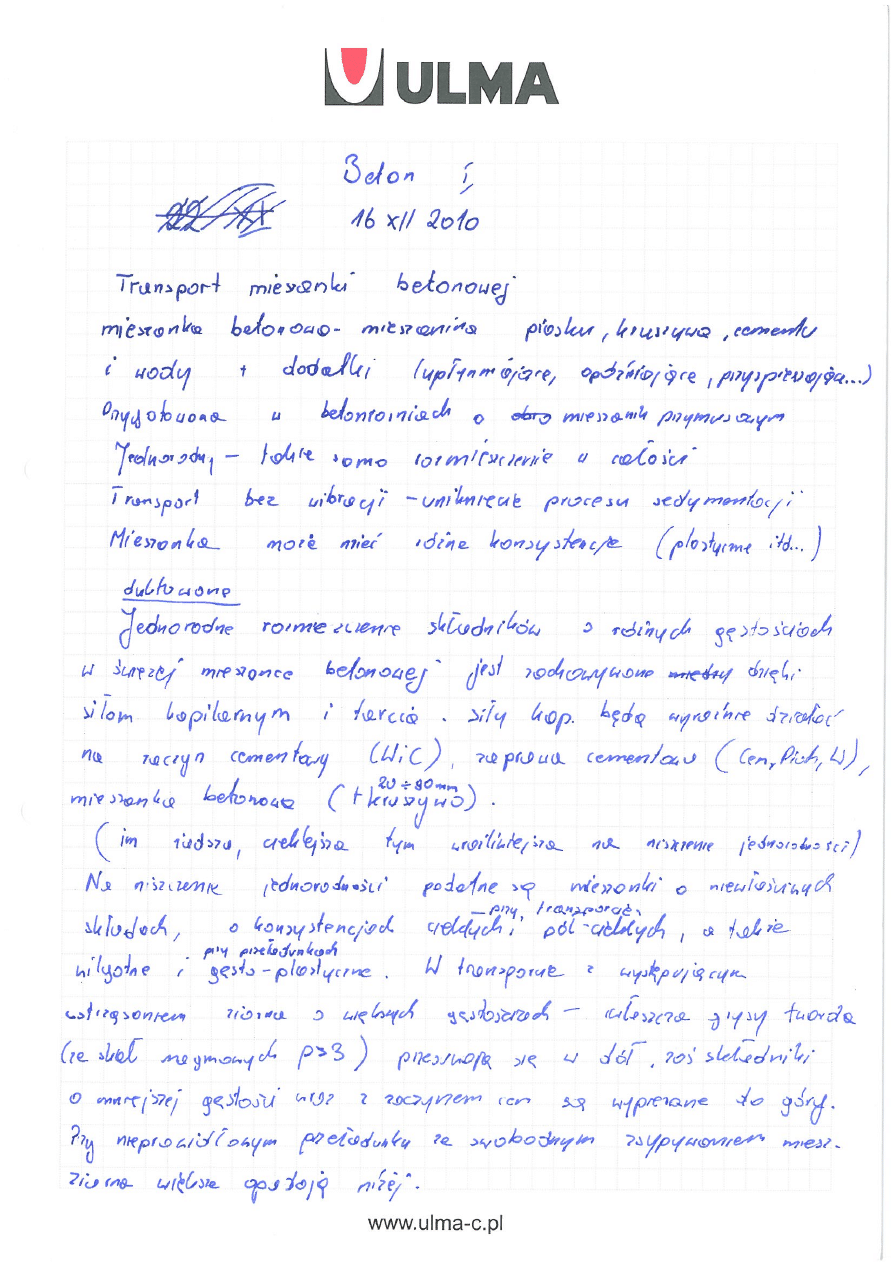 ULMA
Beton I,
16 XII 2010
Transport mieszanki betonowej
mieszanka betonowa - mieszanina piasku, kruszywa, cementu
i wody + dodatki (upłynniające, opóźniające, przyspieszające...)
Przygotowana w betoniarniach o mieszaniu przymusowym
Jednorodny - takie samo rozmieszczenie w całości
Transport bez wibracji - uniknięcie procesu sedymentacji
Mieszanka może mieć różne konsystencje (plastyczne itd...)
duktowane
Jednorodne rozmieszczenie składników o różnych gęstościach
w świeżej mieszance betonowej jest zachowywane między dzięki
siłom kapilarnym i tarcia. siły kap. będą wyraźnie działać
na zaczyn cementowy (WiC), zaprawa cementowa (Cem, Piach, W),
20 ÷ 80 mm
mieszanka betonowa (+ kruszywo).
(im rzadsza, cieklejsza tym wrażliwsza na niszczenie jednorodności)
Na niszczenie jednorodności podatne są mieszanki o niewłaściwych
- przy transporcie,
składach, o konsystencjach ciekłych i pół-ciekłych, a także
przy przeładunkach
wilgotne i gęsto-plastyczne. W transporcie z występującym
wstrząsaniem ziarna o większych gęstościach - zwłaszcza grysy twarde
(ze skał magmowych ρ≥3) przesuwają się w dół, zaś składniki
o mniejszej gęstości wraz z zaczynem cem są wypierane do góry.
Przy nieprawidłowym przeładunku ze swobodnym zsypywaniem miesz.
ziarna większe opadają niżej.
www.ulma-c.pl